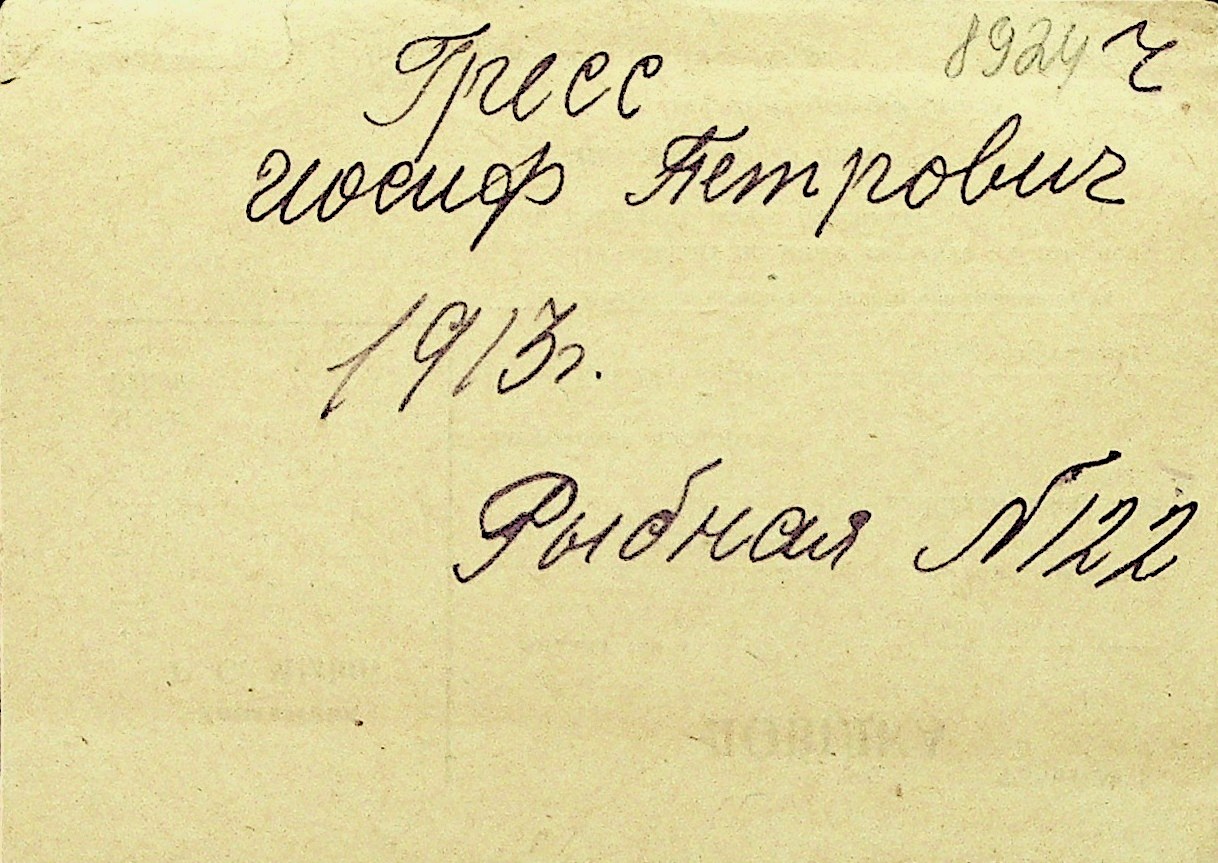 8924 ч
Гресс
Иосиф Петрович
1913г.
Рыбная №122